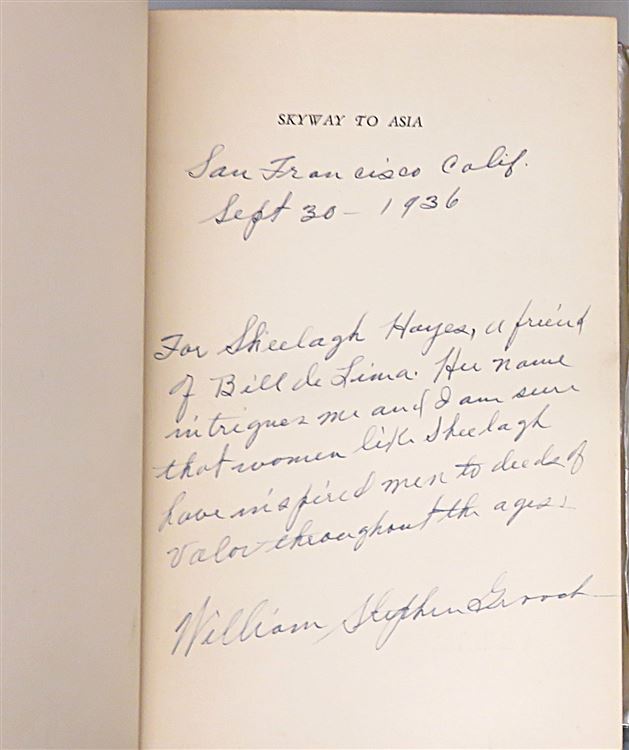 SKYWAY TO ASIA
San Francisco Calif.
Sept 30 - 1936
For Sheelagh Hayes, a friend
of Bill de Lima. Her name
intrigues me and I am sure
that women like Sheelagh
have inspired men to deeds of
valor throughout the ages.
William Stephen Grooch